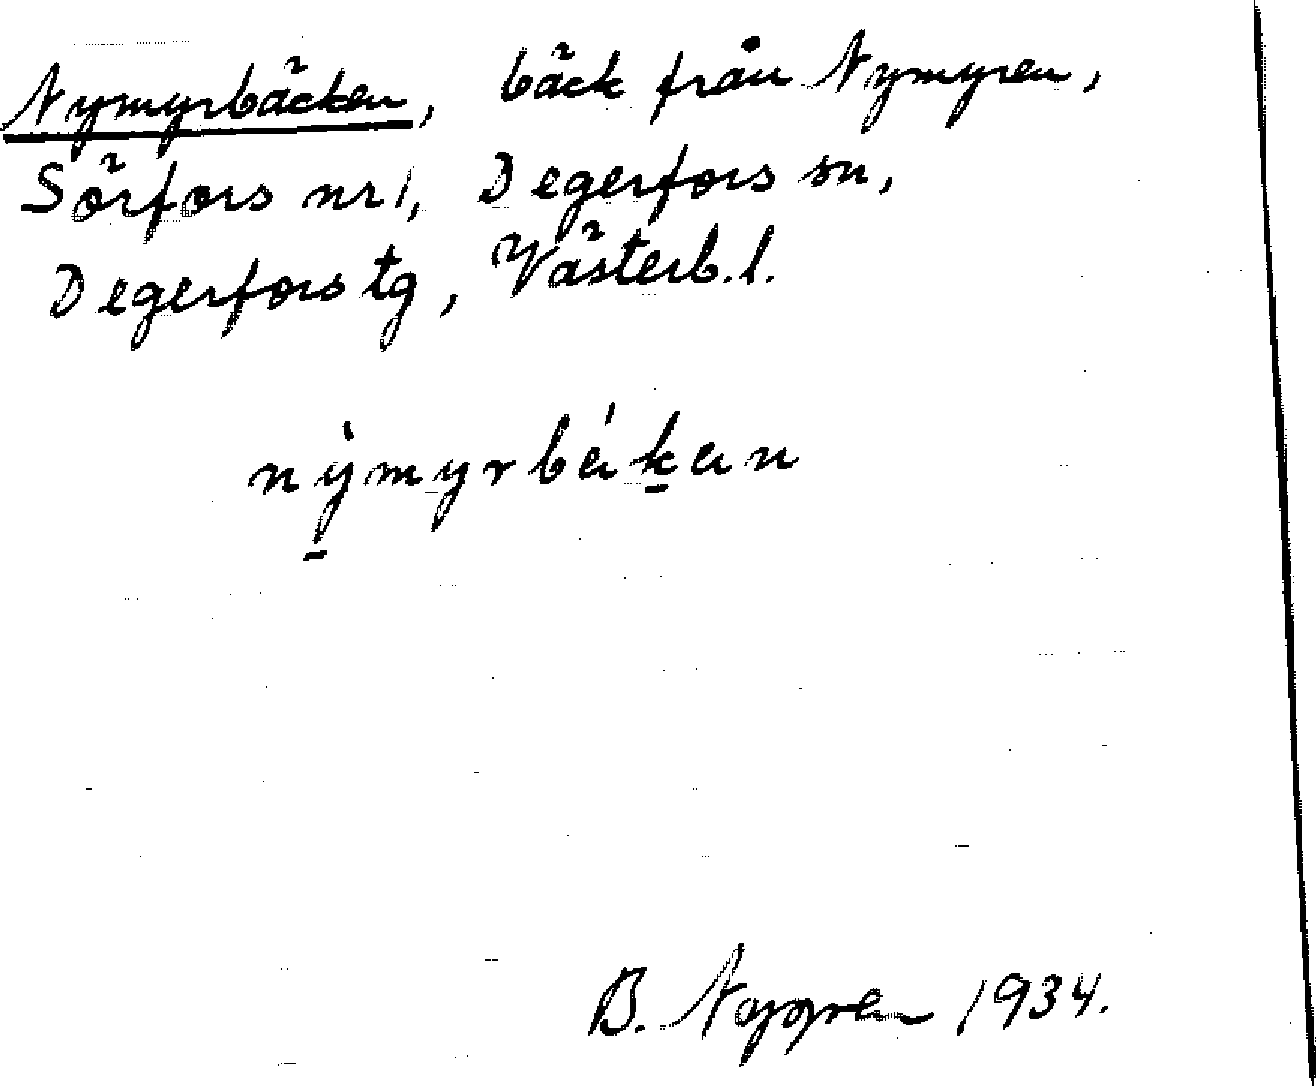 Nymyrbäcken, bäck från Nymyren,
Sörfors nr 1, Degerfors sn,
Degerfors tg, Västerb. l.
nỳmyrbákan
B. 1934.